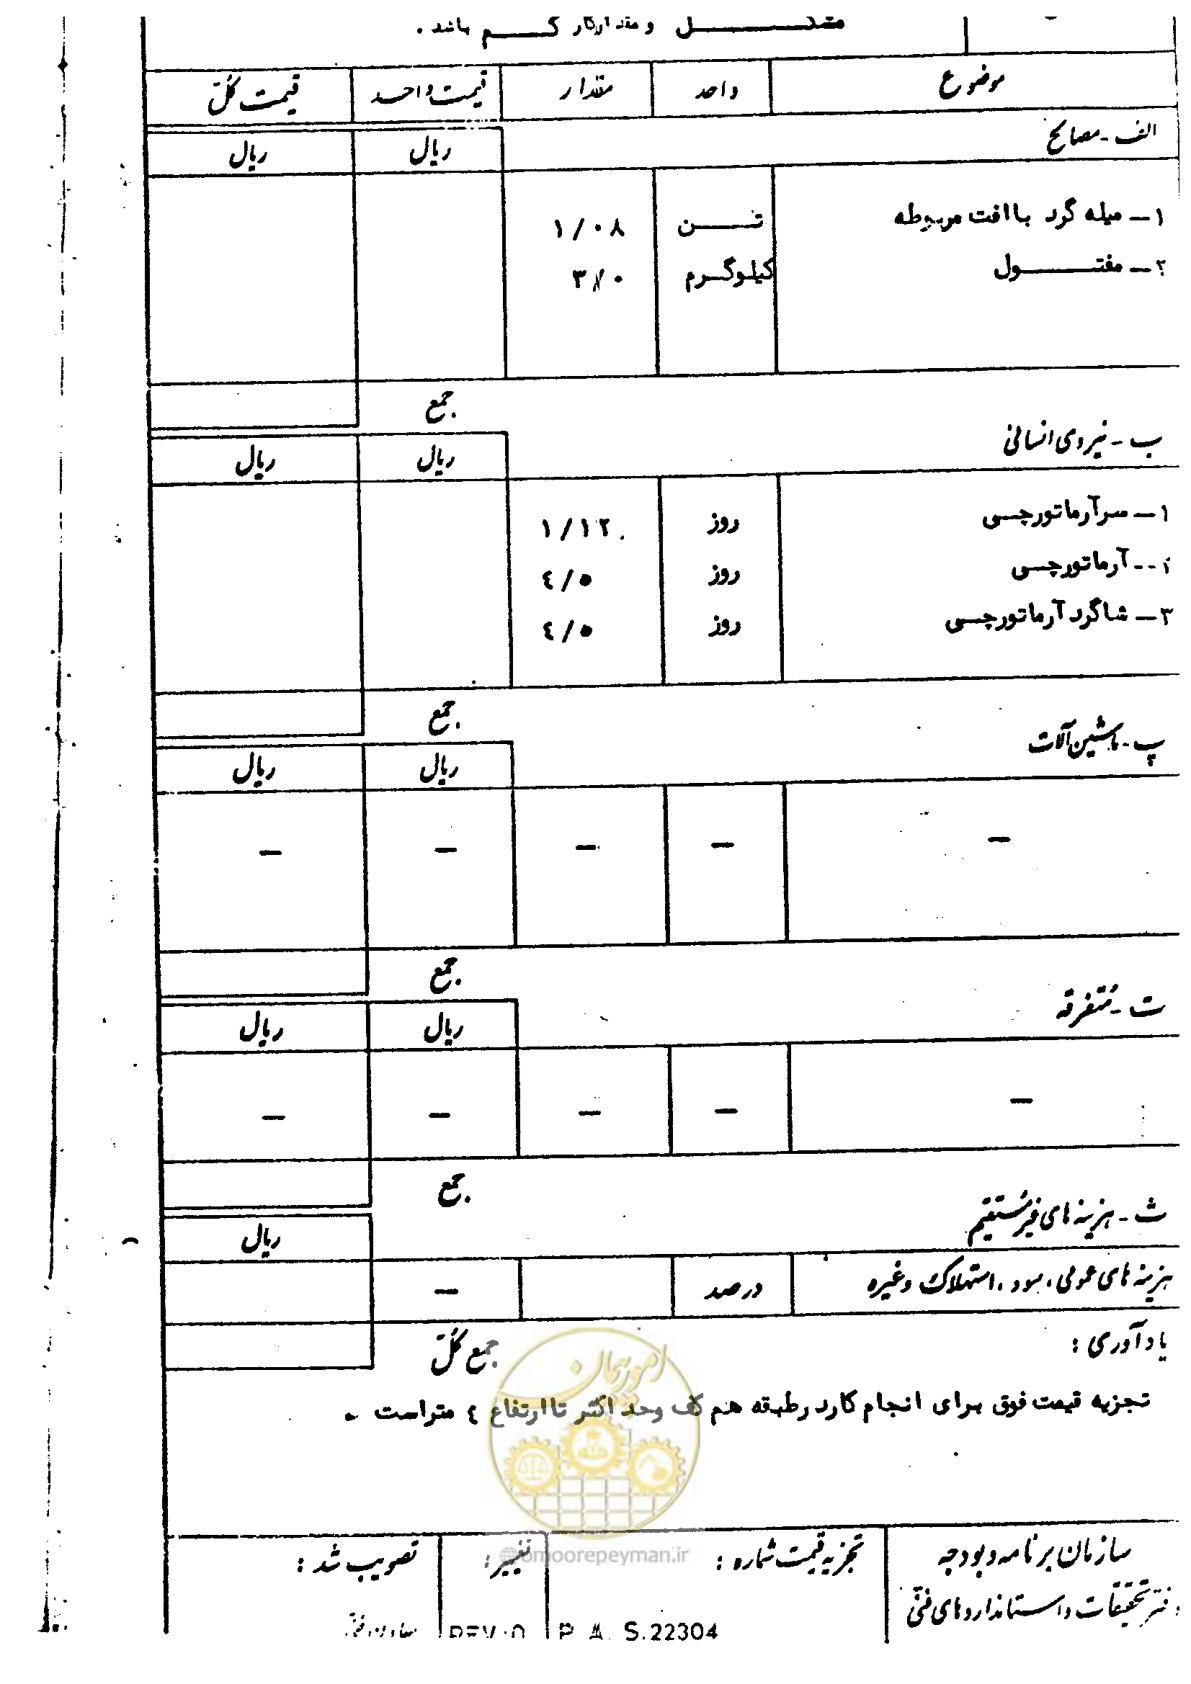 مشکل و مقدار کار کم باشد .
موضوع واحد مقدار قیمت واحد قیمت کل
الف - مصالح ریال ریال
۱ - میله گرد با افت مربوطه تن ۱/۰۸
۲ - مفتول کیلوگرم
جمع
ب - نیروی انسانی ریال ریال
۱ - سرآرماتورچی روز ۱/۱۲
۲ - آرماتورچی روز ٤/٥
۳ - شاگرد آرماتورچی روز ٤/٥
جمع
پ - ماشین آلات ریال ریال
— — — — —
جمع
ت - متفرقه ریال ریال
— — — — —
جمع
ث - هزینه های غیرمستقیم ریال
هزینه های عمومی ، سود ، استهلاک وغیره درصد —
یادآوری : جمع کل
تجزیه قیمت فوق برای انجام کار در طبقه هم کف وحد اکثر تا ارتفاع ٤ متراست .
امور پیمان
@omoorepeyman.ir
سازمان برنامه و بودجه تجزیه قیمت شماره : تغییر : تصویب شد :
دفتر تحقیقات و استانداردهای فنی P. A. S.22304 REV.0